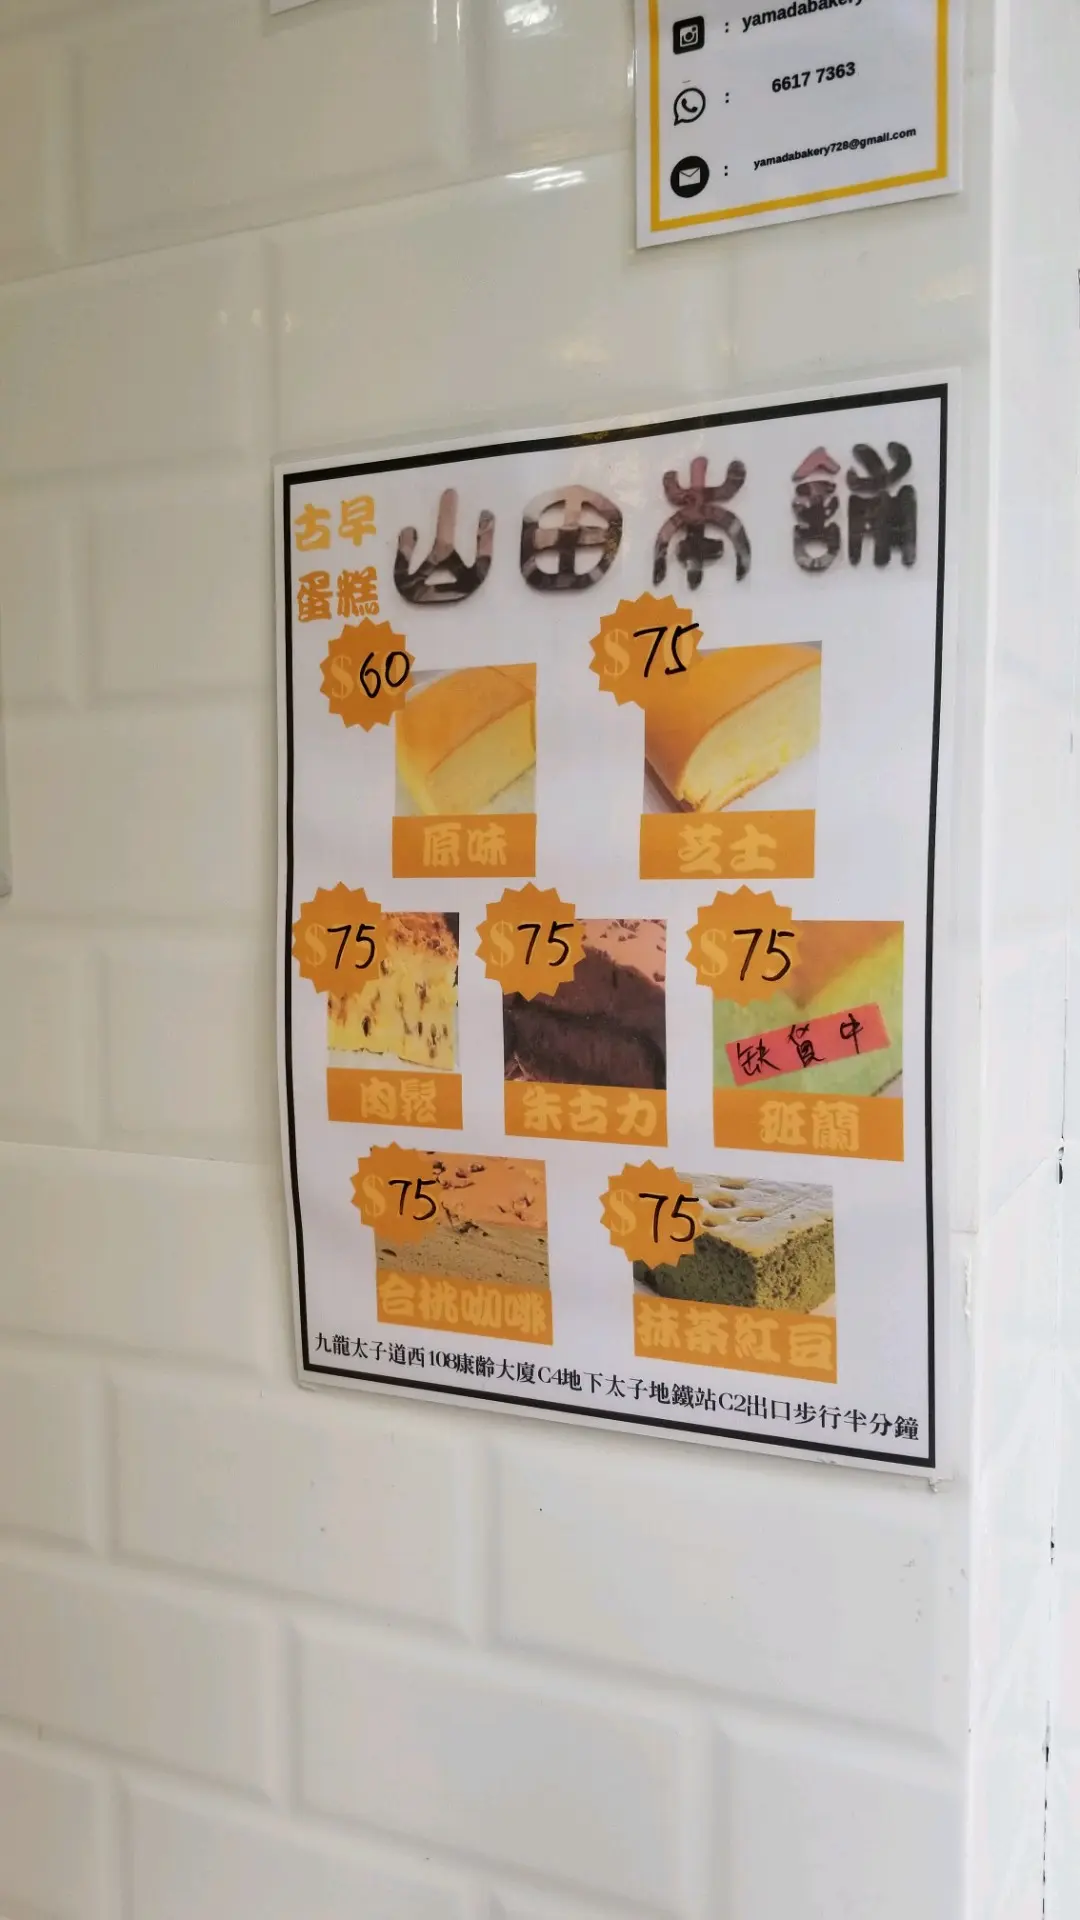 : yamadabakery
: 6617 7363
: yamadabakery728@gmail.com
古早
蛋糕
山田本舖
$60
$75
原味
芝士
$75
$75
$75
缺貨中
肉鬆
朱古力
班蘭
$75
$75
合桃咖啡
抹茶紅豆
九龍太子道西108康齡大廈C4地下太子地鐵站C2出口步行半分鐘